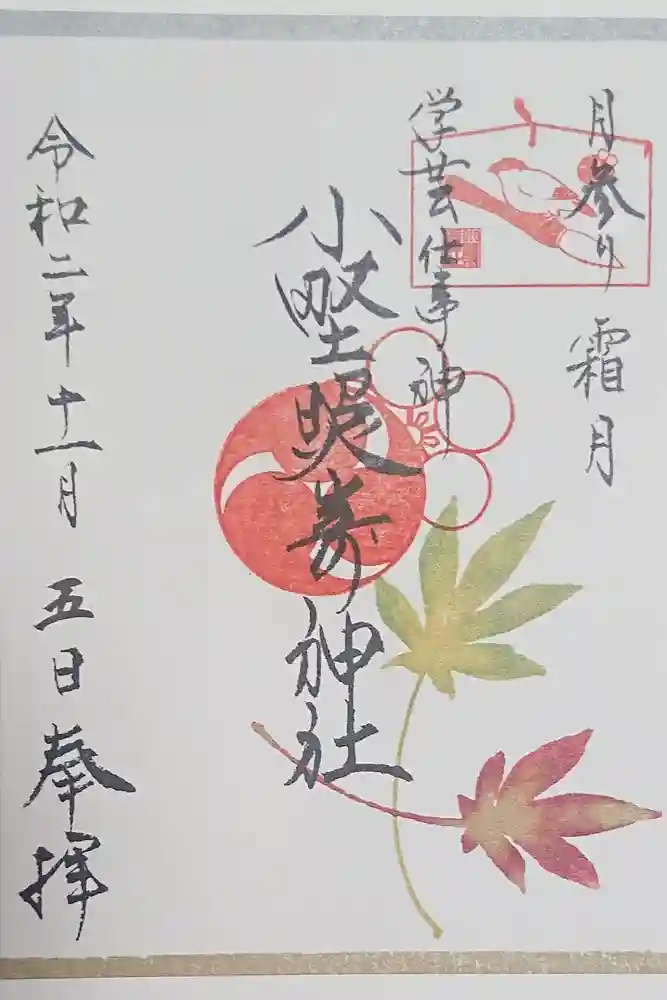 月参り 霜月
学芸仕事ノ神
小野照崎神社
令和二年十一月五日奉拝